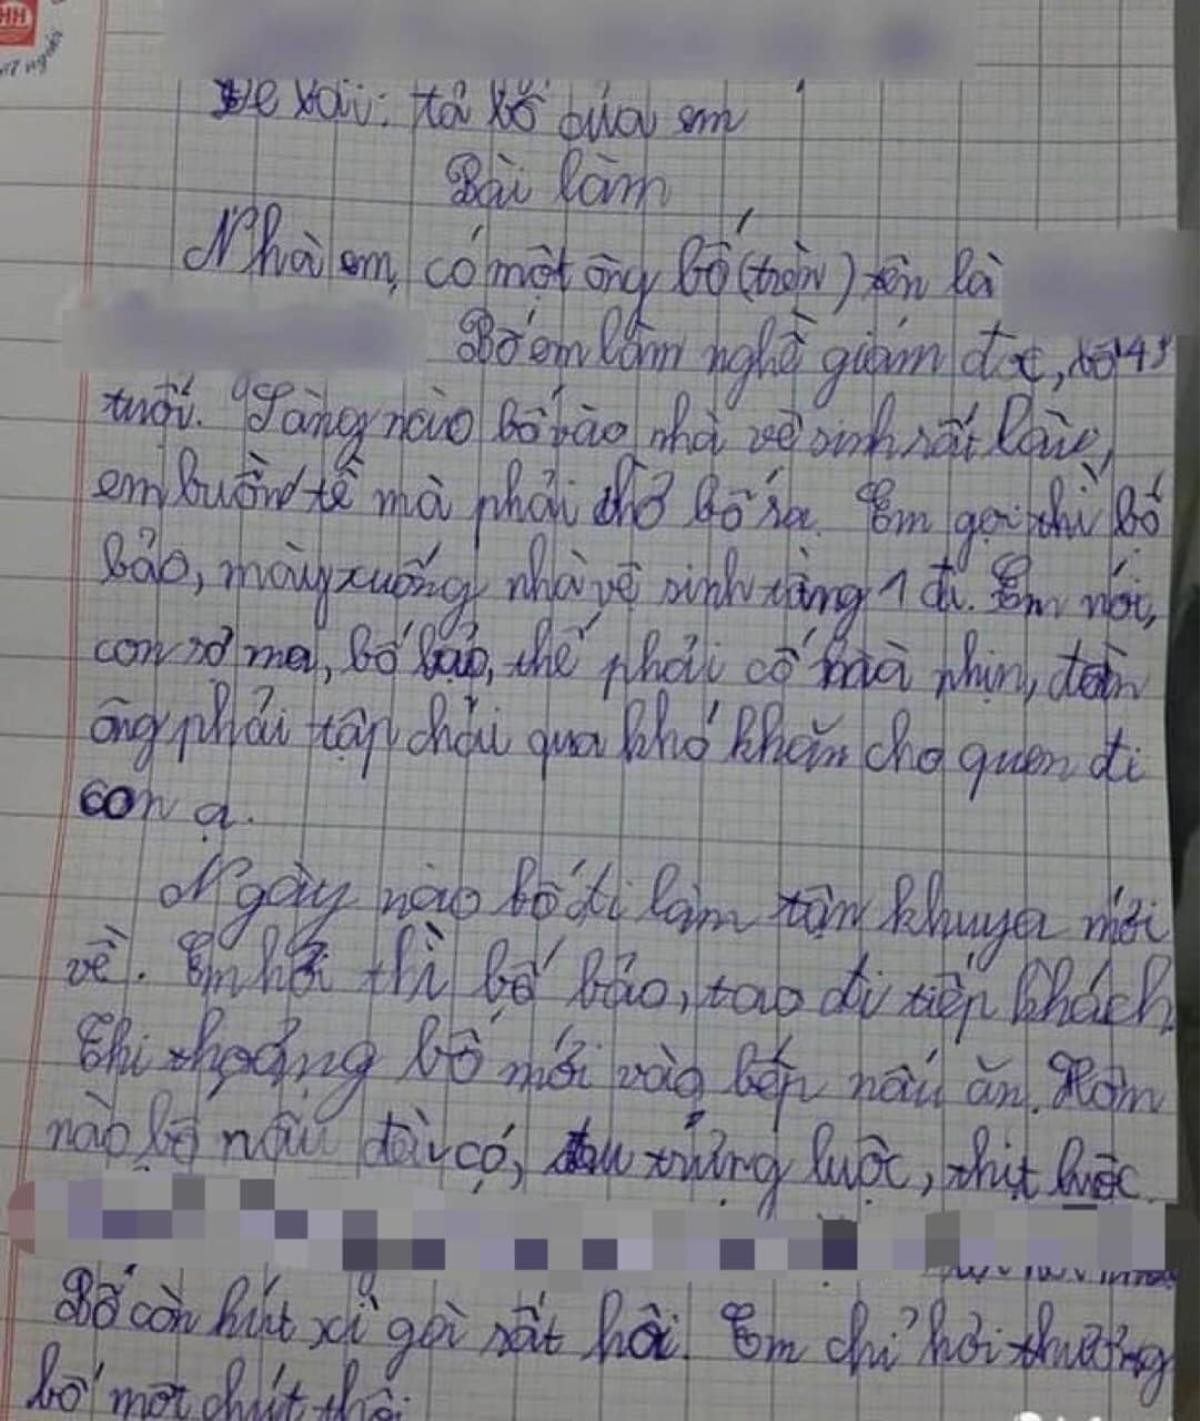 Đề bài: tả bố của em
Bài làm
Nhà em, có một ông bố (trần) tên là
Bố em làm nghề giám đốc, bố 43
tuổi. Sáng nào bố vào nhà vệ sinh rất lâu,
em buồn tề mà phải chờ bố ra. Em gọi thì bố
bảo, mày xuống nhà vệ sinh tầng 1 đi. Em nói,
con sợ ma, bố bảo, thế phải cố mà nhịn, đàn
ông phải tập chải qua khó khăn cho quen đi
con ạ.
Ngày nào bố đi làm tận khuya mới
về. Em hỏi thì bố bảo, tao đi tiếp khách
Thi thoảng bố mới vào bếp nấu ăn. Hôm
nào bố nấu đều có, trứng luộc, thịt luộc.
Bố còn hút xì gòi rất hôi. Em chỉ hơi thương
bố một chút thôi